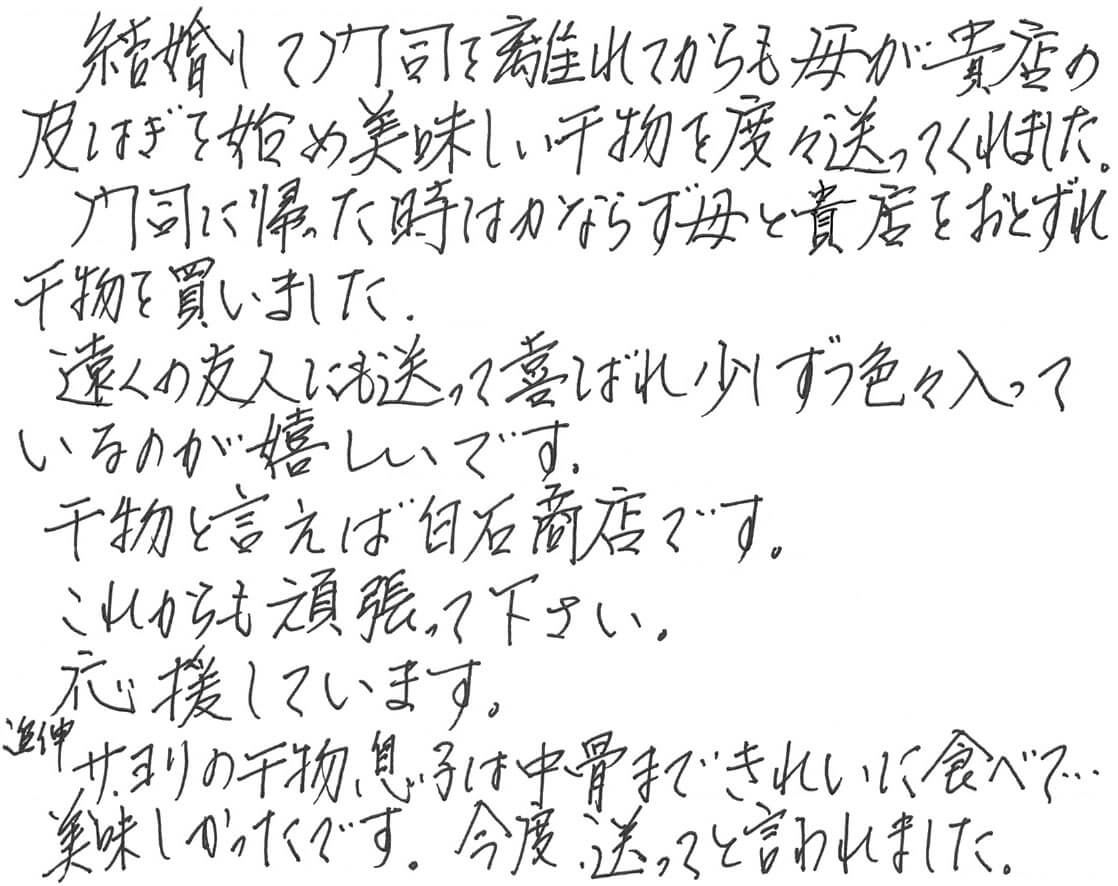 結婚して門司を離れてからも母が貴店の
皮はぎを始め美味しい干物を度々送ってくれました。
門司に帰った時はかならず母と貴店をおとずれ
干物を買いました.
遠くの友人にも送って喜ばれ少しずつ色々入って
いるのが嬉しいです.
干物と言えば白石商店です。
これからも頑張って下さい。
応援しています。
追伸 サヨリの干物、息子は中骨まできれいに食べて…
美味しかったです。今度、送ってと言われました。